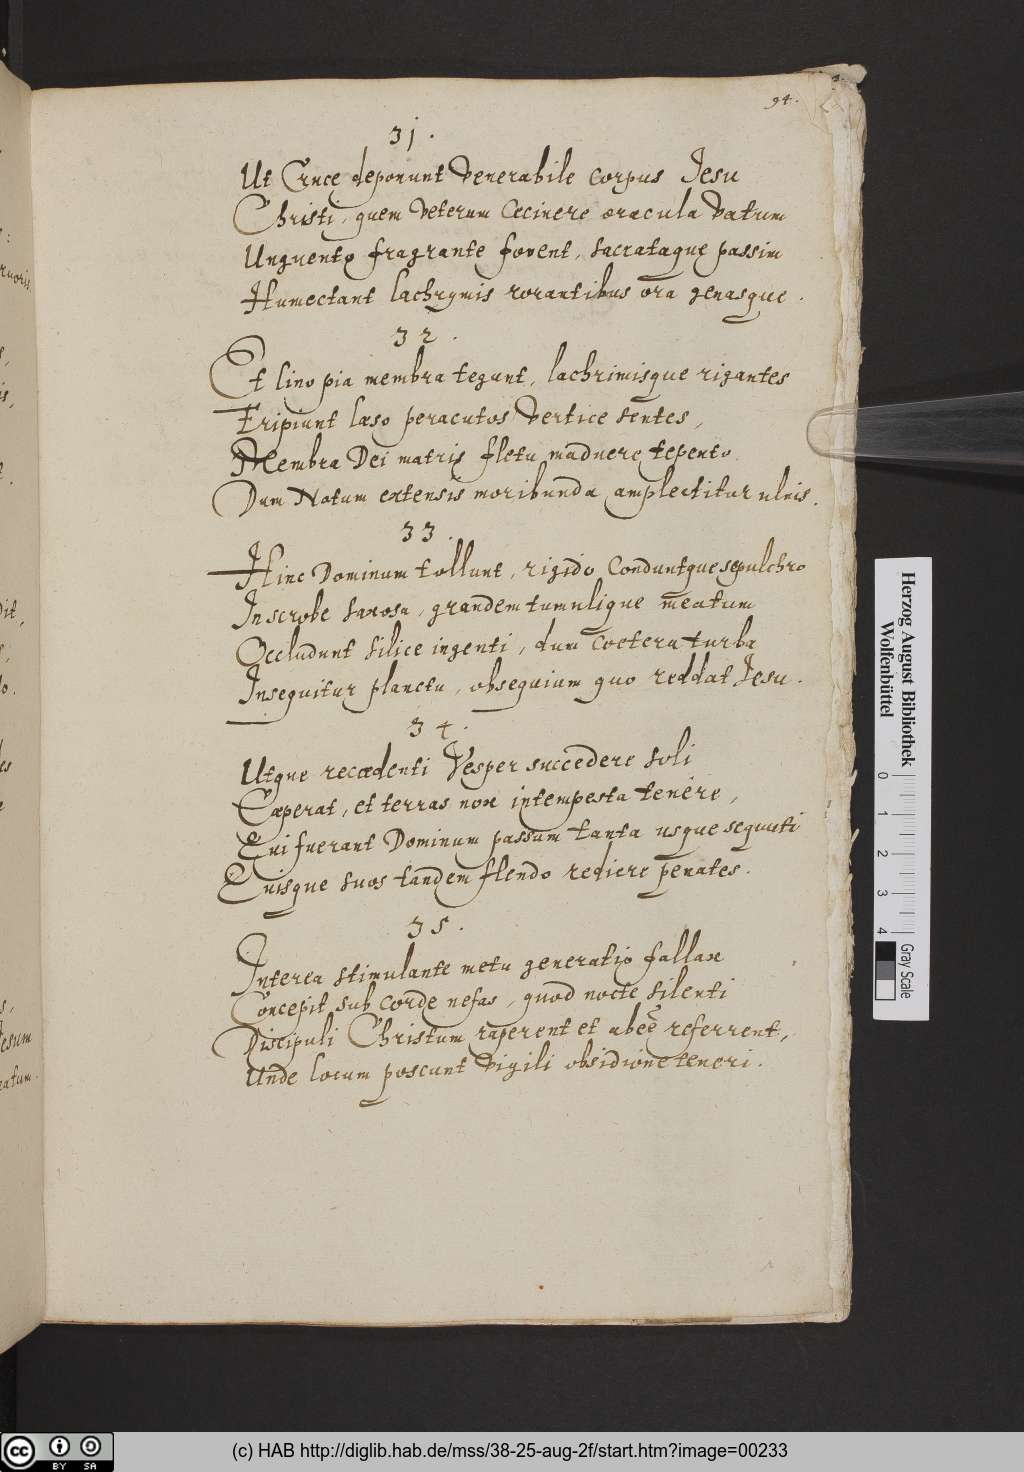 94.
31.
Ut Cruce deponunt Venerabile corpus Jesu
Christi, quem Veterum Cecinere oracula Vatum
Unguento fragrante fovent, sacrataque passim
Humectant lachrymis rorantibus ora genasque.
32.
Et lino pia membra tegunt, lachrimisque rigantes
Eripiunt læso peracutos Vertice sentes,
Membra Dei matris fletu maduere tepento
Dum Notum extensis moribunda amplectitur ulnis.
33.
Hinc Dominum tollunt, rigido Conduntque sepulchro
In scrobe saxosa, grandem tumulique meatum
Occludunt silice ingenti, dum coetera turba
Insequitur planctu, obsequium quo reddat Jesu.
34.
Utque recædenti Vesper succedere soli
Cæperat, et terras nox intempesta tenere,
Qui fuerant Dominum passum tanta usque sequuti
Quisque suos tandem flendo rediere penates.
35.
Interea stimulante metu generatio fallax
Concepit sub corde nefas, quod nocte silenti
Discipuli Christum raperent et abeẽ referrent,
Unde locum poscunt Vigili obsidione teneri.
ruoris.
dit,
lo.
es
Jesum
ratum.
Herzog August Bibliothek
Wolfenbüttel
0 1 2 3 4
Gray Scale
cc BY SA
(c) HAB http://diglib.hab.de/mss/38-25-aug-2f/start.htm?image=00233